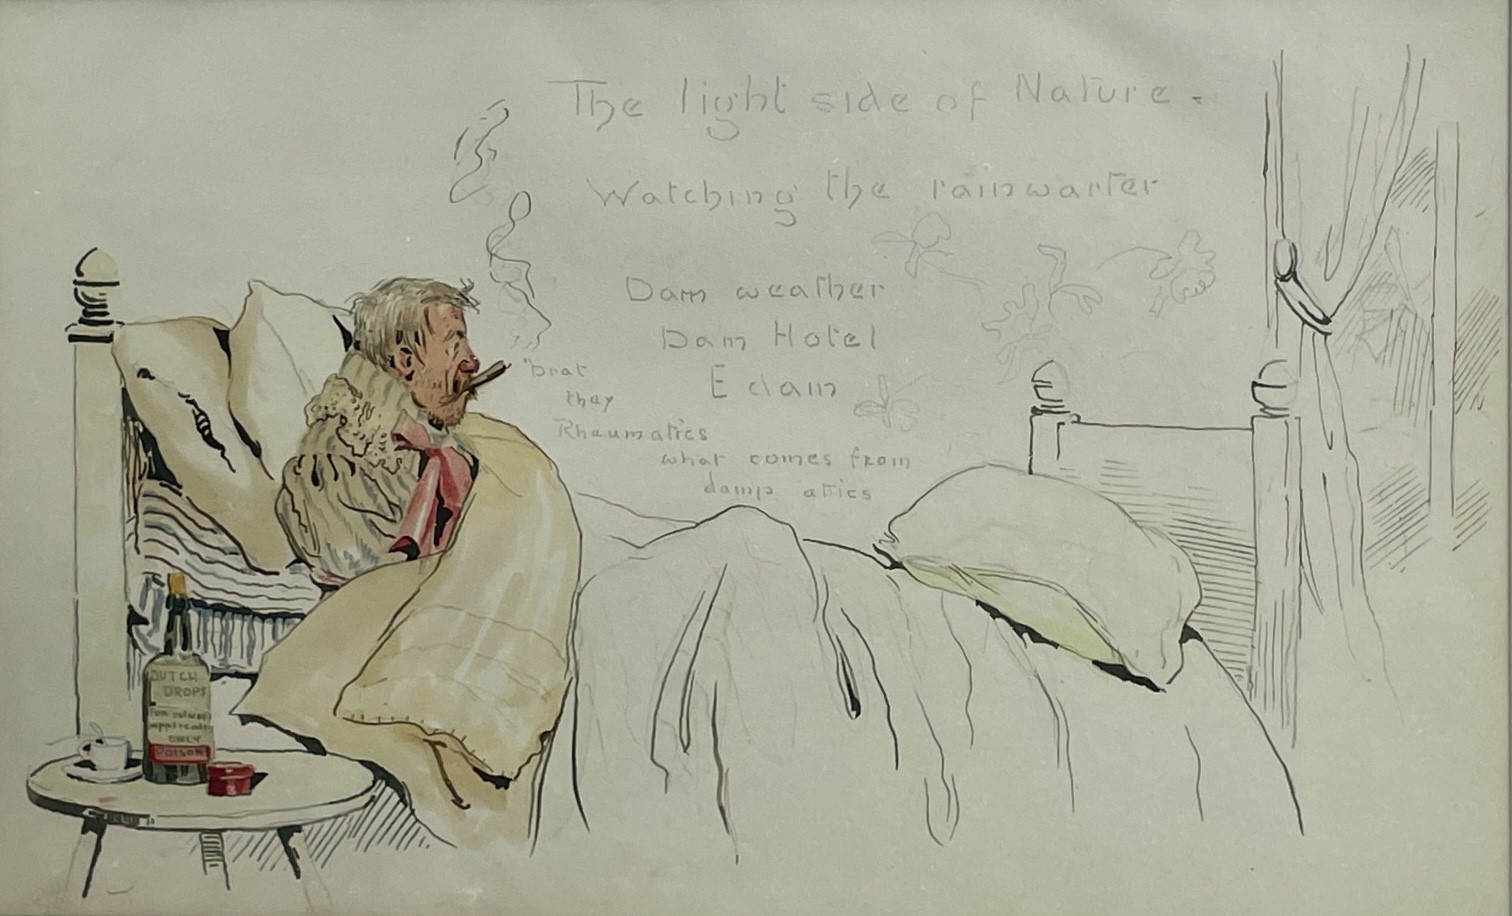 The light side of Nature.
Watching the rainwarter
Dam weather
Dam Hotel
Edam
"Drat
they
Rheumatics
what comes from
damp attics
DUTCH
DROPS
For
ONLY
POISON